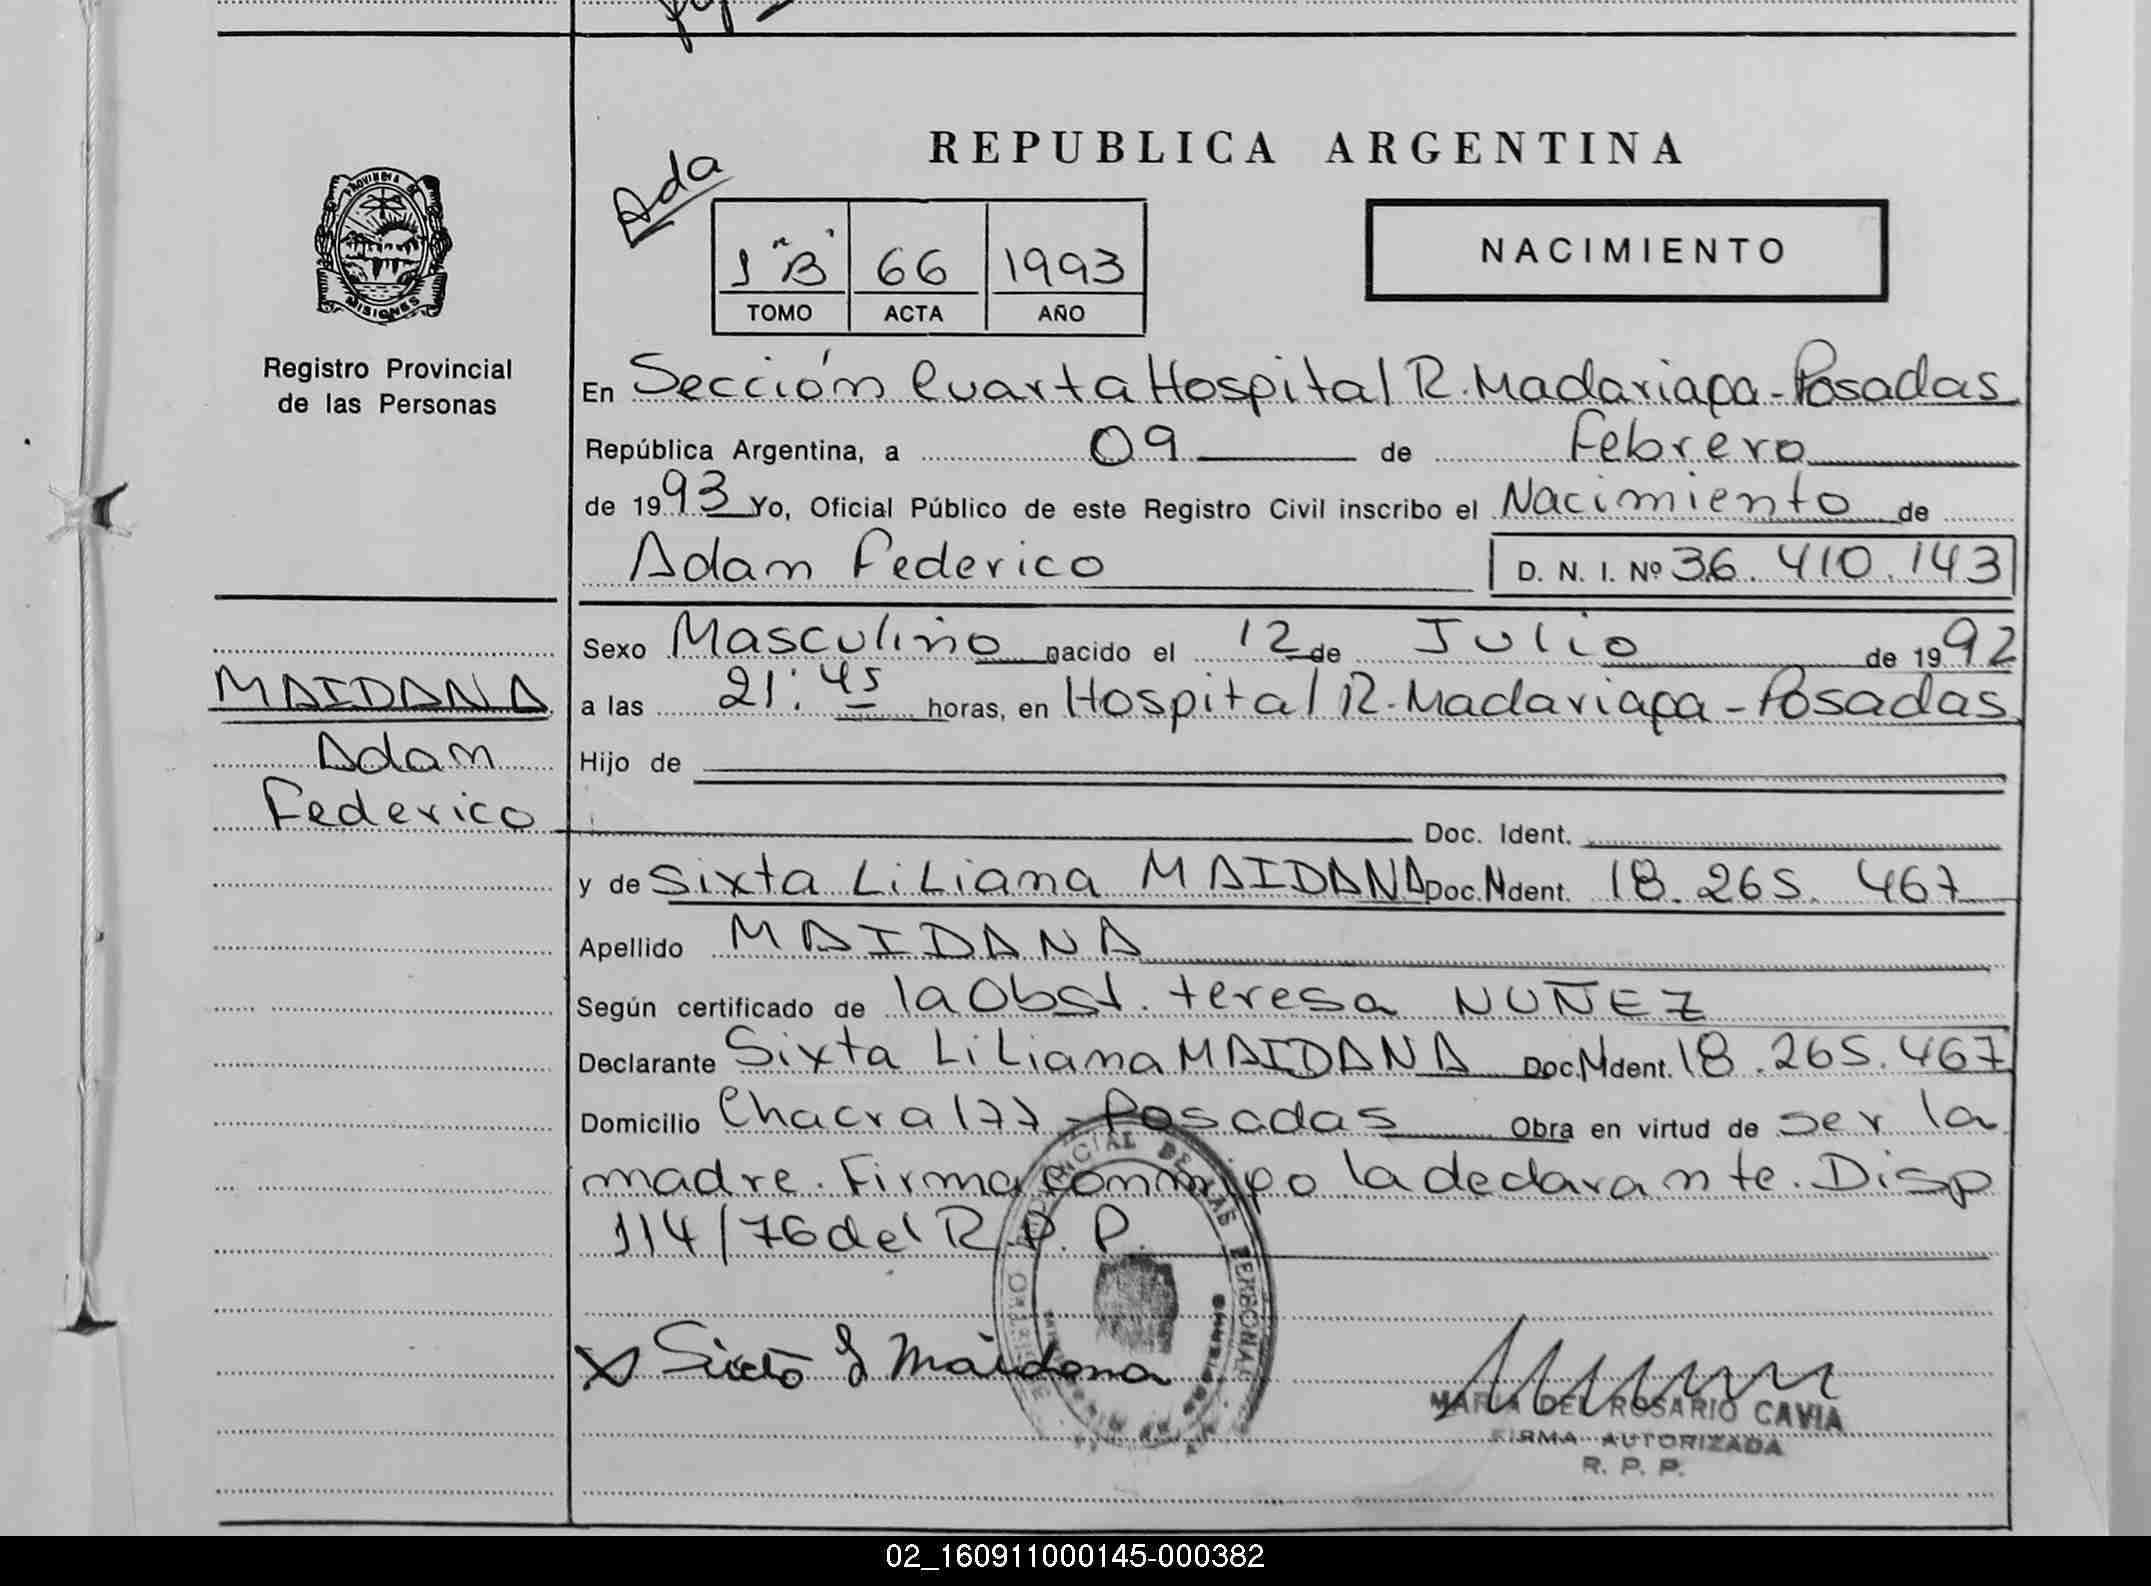 REPUBLICA ARGENTINA
Ada
1 "B" 66 1993
TOMO ACTA AÑO
NACIMIENTO
PROVINCIA DE
MISIONES
Registro Provincial
de las Personas
En Sección Cuarta Hospital R. Madariaga - Posadas
República Argentina, a 09 de Febrero
de 1993 Yo, Oficial Público de este Registro Civil inscribo el Nacimiento de
Adam Federico D. N. I. Nº 36.410.143
Sexo Masculino nacido el 12 de Julio de 1992
MAIDANA
Adam
Federico
a las 21:45 horas, en Hospital R. Madariaga - Posadas
Hijo de
Doc. Ident.
y de Sixta Liliana MAIDANA Doc. Ndent. 18.265.467
Apellido MAIDANA
Según certificado de la Obst. teresa NUÑEZ
Declarante Sixta Liliana MAIDANA Doc. Ndent. 18.265.467
Domicilio Chacra 177 - Posadas Obra en virtud de ser la
madre. Firma conmigo la declarante. Disp
114/76 del R.P.P.
X Sixta L Maidana
MARIA DEL ROSARIO CAVIA
FIRMA AUTORIZADA
R. P. P.
02_160911000145-000382